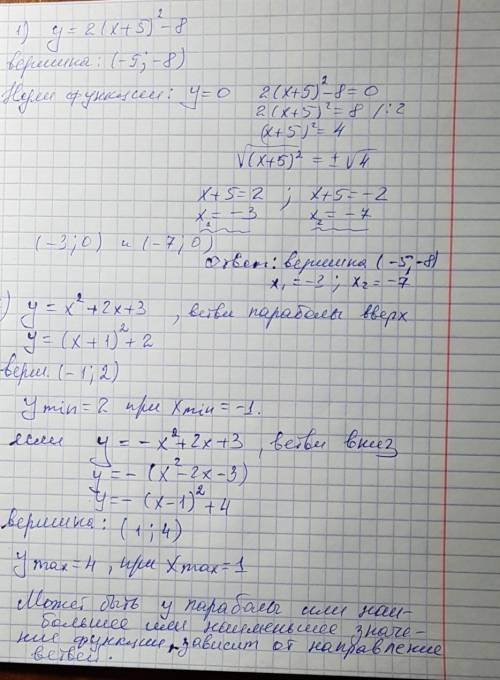 1) y = 2(x+5)² - 8
вершина: (-5; -8)
Нули функции: y=0 2(x+5)² - 8 = 0
2(x+5)² = 8 /:2
(x+5)² = 4
√(x+5)² = ±√4
x+5=2 ; x+5=-2
x₁ = -3 x₂ = -7
(-3; 0) и (-7; 0)
Ответ: вершина (-5; -8)
x₁ = -3 ; x₂ = -7
) y = x² + 2x + 3 , ветви параболы вверх
y = (x+1)² + 2
верш. (-1; 2)
y min = 2 при x min = -1.
если y = -x² + 2x + 3 , ветви вниз
y = -(x² - 2x - 3)
y = -(x-1)² + 4
вершина: (1; 4)
y max = 4 , при x max = 1
Может быть у параболы или наи-
большее или наименьшее значе-
ние функции, зависит от направление
ветвей.